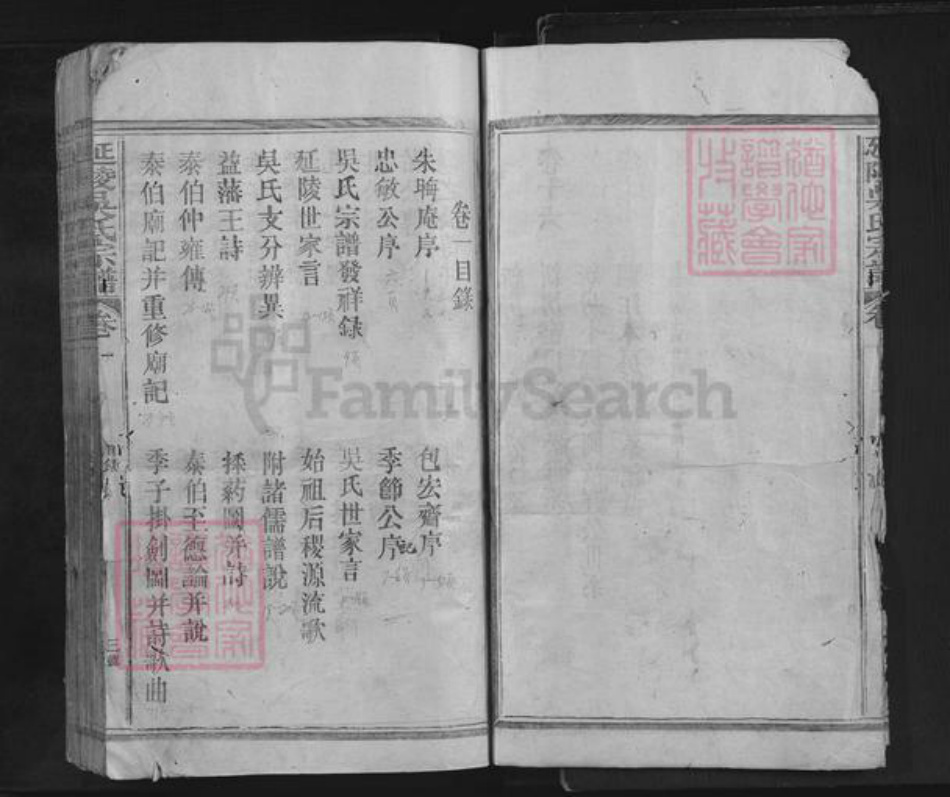 延陵吳氏宗譜 卷
猶他家譜學會收藏
卷一目錄
朱晦庵序
包宏齋序
忠敏公序
季節公序 記
吳氏宗譜發祥録
吳氏世家言
延陵世家言
始祖后稷源流歌
吳氏支分辨異
附諸儒譜說
益藩王詩
採葯圖并詩
泰伯仲雍傳
泰伯至德論并說
泰伯廟記并重修廟記
季子掛劍圖并詩歌曲
延陵吳氏宗譜 卷一
目錄
三
猶他家譜學會收藏
FamilySearch